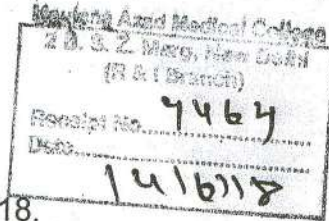 Maulana Azad Medical College
2 B. S. Z. Marg, New Delhi
(R & I Branch)
Receipt No. 7464
Date 14/6/18
18.